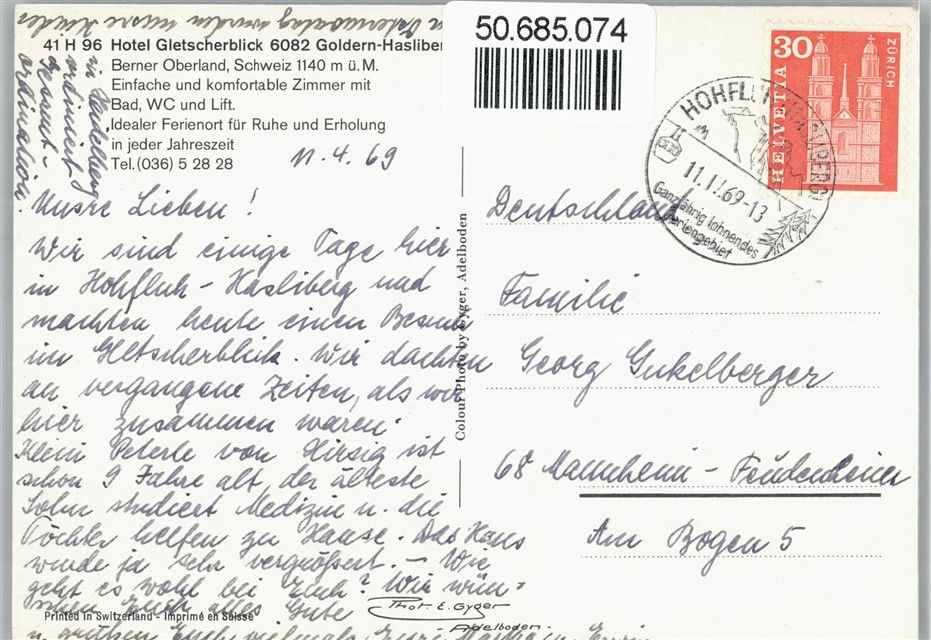 50.685.074
41 H 96 Hotel Gletscherblick 6082 Goldern-Hasliber
Berner Oberland, Schweiz 1140 m ü. M.
Einfache und komfortable Zimmer mit
Bad, WC und Lift.
Idealer Ferienort für Ruhe und Erholung
in jeder Jahreszeit
Tel. (036) 5 28 28
11.4.69
Unsre Lieben!
Wir sind einige Tage hier
in Hohfluh-Hasliberg und
machten heute einen Besuch
im Gletscherblick. Wir dachten
an vergangene Zeiten, als wir
hier zusammen waren.
Klein Peterle von Hirsig ist
schon 9 Jahre alt, der älteste
Sohn studiert Medizin u. die
Töchter helfen zu Hause. Das Haus
wurde ja sehr vergrößert. - Wie
geht es wohl bei Euch? Wir wün-
schen Euch alles Gute
u. grüßen Euch vielmals, Eure
wurden unsre Kinder
in Heidelberg
ordination.
Printed in Switzerland - Imprimé en Suisse
Phot. E. Gyger
Adelboden.
Colour Photo by Gyger, Adelboden
30
HELVETIA
ZÜRICH
HOHFLUH
11.IV.69-13
Ganzjährig lohnendes
Feriengebiet
Deutschland
Familie
Georg Gukelberger
68 Mannheim - Feudenheim
Am Bogen 5